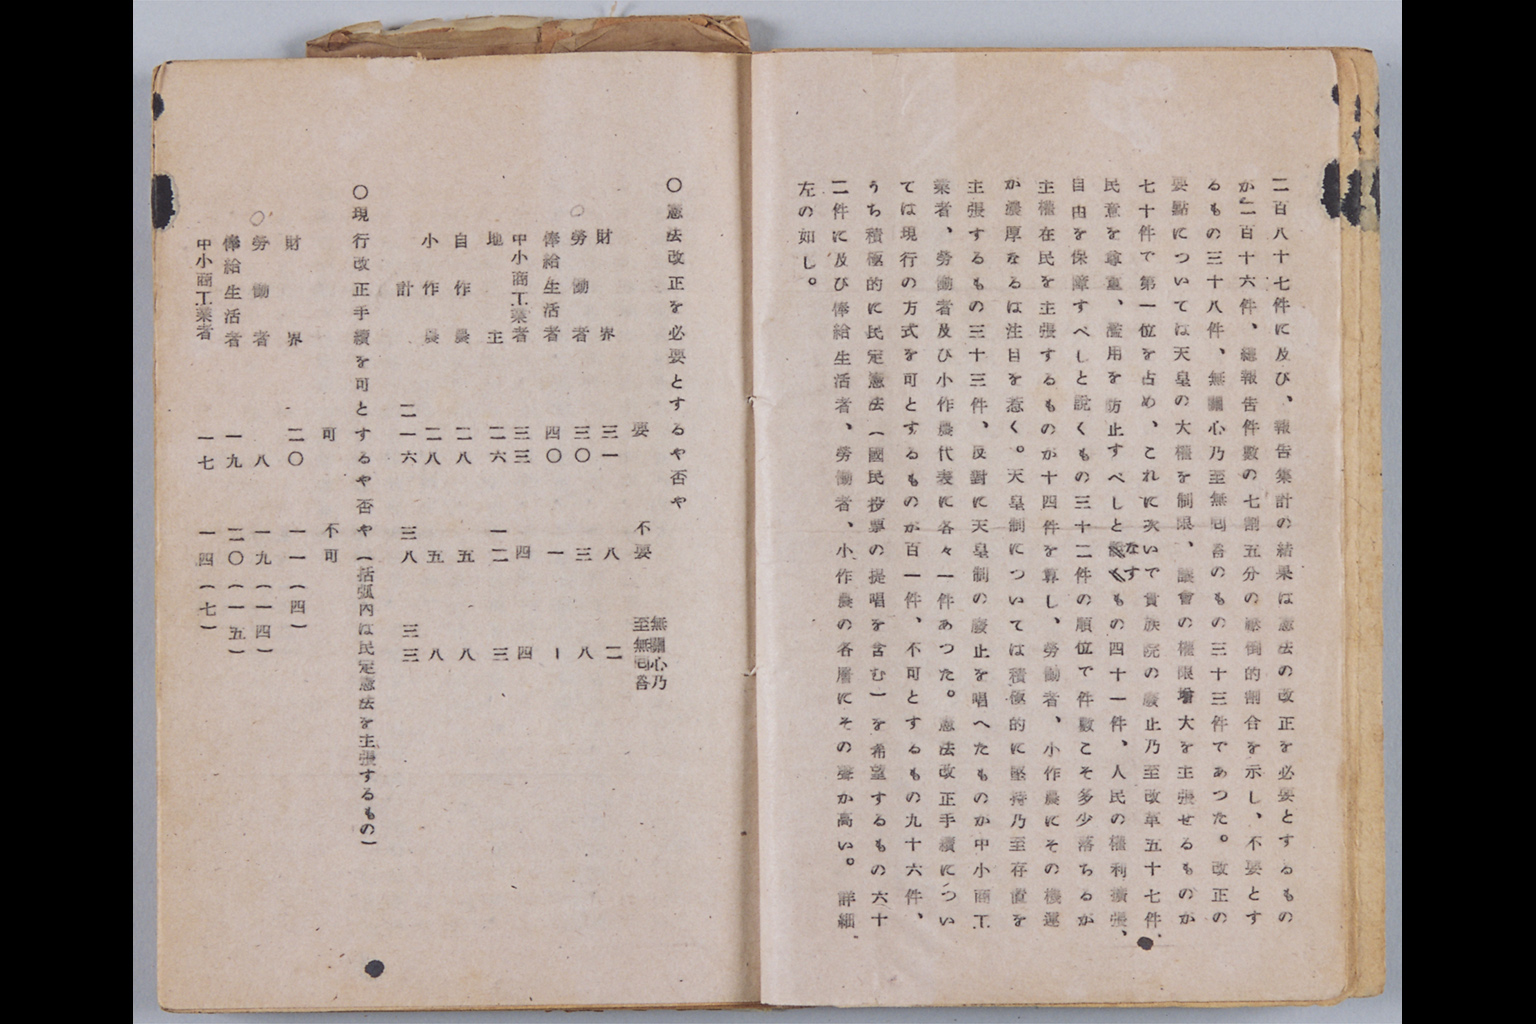 二百八十七件に及び、報告集計の結果は憲法の改正を必要とするもの
が二百十六件、總報告件數の七割五分の壓倒的割合を示し、不要とす
るもの三十八件、無關心乃至無囘答のもの三十三件であつた。改正の
要點については天皇の大權を制限、議會の權限增大を主張せるものが
七十件で第一位を占め、これに次いで貴族院の廢止乃至改革五十七件、
民意を尊重、濫用を防止すべしとなすもの四十一件、人民の權利擴張、
自由を保障すべしと說くもの三十二件の順位で件數こそ多少落ちるが
主權在民を主張するものが十四件を算し、勞働者、小作農にその機運
が濃厚なるは注目を惹く。天皇制については積極的に堅持乃至存置を
主張するもの三十三件、反對に天皇制の廢止を唱へたものが中小商工
業者、勞働者及び小作農代表に各々一件あつた。憲法改正手續につい
ては現行の方式を可とするものが百一件、不可とするもの九十六件、
うち積極的に民定憲法(國民投票の提唱を含む)を希望するもの六十
二件に及び俸給生活者、勞働者、小作農の各層にその聲が高い。詳細
左の如し。
〇憲法改正を必要とするや否や
要 不要 無關心乃至無囘答
財界 三一 八 二
〇勞働者 三〇 三 八
俸給生活者 四〇 一 一
中小商工業者 三三 四 四
地主 二六 一二 三
自作農 二八 五 八
小作農 二八 五 八
計 二一六 三八 三三
〇現行改正手續を可とするや否や(括弧內は民定憲法を主張するもの)
可 不可
財界 二〇 一一(四)
〇勞働者 八 一九(一四)
俸給生活者 一九 二〇(一五)
中小商工業者 一七 一四(七)